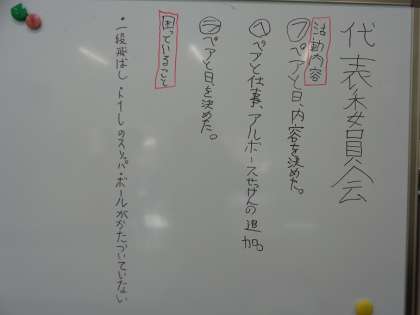 代表委員会
活動内容
フ ペアと日、内容を決めた。
ヘ ペアと仕事、アルボースせっけんの追加。
ラ ペアと日を決めた。
困っていること
・一段飛ばし、トイレのスリッパ・ボールがかたづいていない